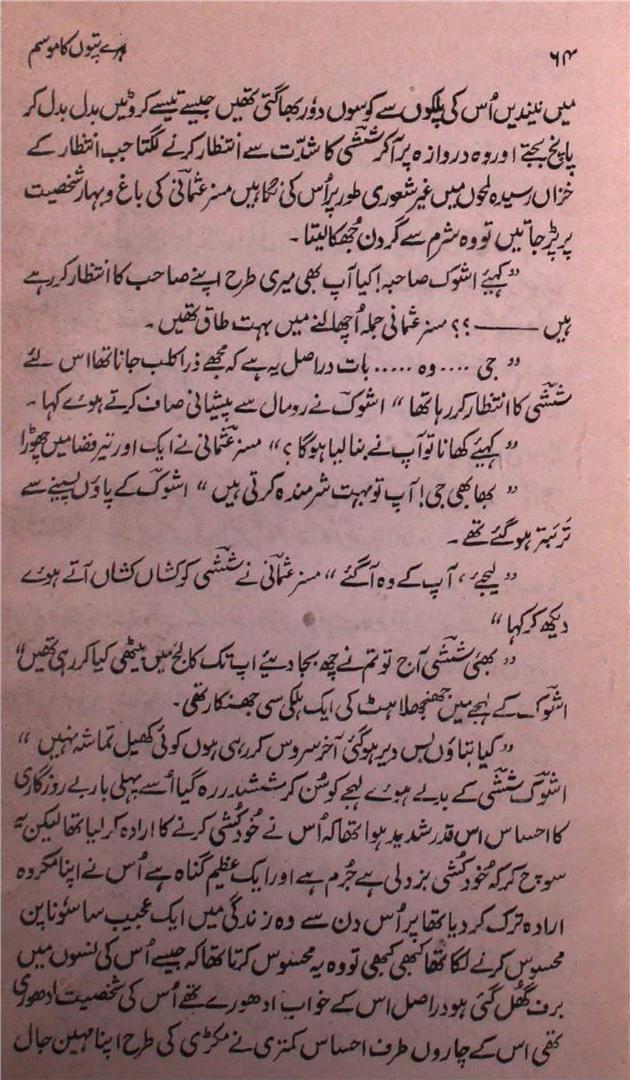 ۶۴
ہرے پتوں کا موسم
میں نیندیں اُس کی پلکوں سے کوسوں دُور بھاگتی تھیں جیسے تیسے کروٹیں بدل بدل کر
پانچ بجتے اور وہ دروازہ پر آکر ششّی کا شدّت سے انتظار کرنے لگتا جب انتظار کے
خزاں رسیدہ لمحوں میں غیر شعوری طور پر اُس کی نگاہیں مسز عثمانی کی باغ و بہار شخصیت
پر پڑ جاتیں تو وہ شرم سے گردن جُھکا لیتا ۔
” کہیئے اشوک صاحبہ! کیا آپ بھی میری طرح اپنے صاحب کا انتظار کر رہے
ہیں ——— ؟؟ مسز عثمانی جملہ اُچھالنے میں بہت طاق تھیں ۔
” جی .... وہ ..... بات دراصل یہ ہے کہ مجھے ذرا کلب جانا تھا اس لئے
ششّی کا انتظار کر رہا تھا “ اشوک نے رومال سے پیشانی صاف کرتے ہوئے کہا ۔
” کہیئے کھانا تو آپ نے بنا لیا ہوگا ؟ “ مسز عثمانی نے ایک اور تیر فضا میں چھوڑا
” بھابھی جی! آپ تو بہت شرمندہ کرتی ہیں “ اشوک کے پاؤں پسینے سے
تر بتر ہو گئے تھے ۔
” لیجئے ، آپ کے وہ آگئے “ مسز عثمانی نے ششّی کو کشاں کشاں آتے ہوئے
دیکھ کر کہا “
” بھئی ششّی آج تو تم نے چھ بجا دیئے اب تک کالج میں بیٹھی کیا کر رہی تھیں “
اشوک کے لہجے میں جھنجھلاہٹ کی ایک ہلکی سی جھنکار تھی ۔
” کیا بتاؤں بس دیر ہوگئی آخر سروس کر رہی ہوں کوئی کھیل تماشہ نہیں “
اشوک ششّی کے بدلے ہوئے لہجے کو سُن کر ششدر رہ گیا اُسے پہلی بار بے روزگاری
کا احساس اس قدر شدید ہوا تھا کہ اُس نے خُودکُشی کرنے کا ارادہ کر لیا تھا لیکن یہ
سوچ کر کہ خُودکُشی بزدلی ہے جُرم ہے اور ایک عظیم گناہ ہے اُس نے اپنا مکروہ
ارادہ ترک کر دیا تھا پر اُس دن سے وہ زندگی میں ایک عجیب سا سُونا پن
محسوس کرنے لگا تھا کبھی کبھی تو وہ یہ محسوس کرتا تھا کہ جیسے اُس کی نسوں میں
برف گُھل گئی ہو دراصل اس کے خواب ادھورے تھے اُس کی شخصیت ادھوری
تھی اس کے چاروں طرف احساس کمتری نے مکڑی کی طرح اپنا مہین جال